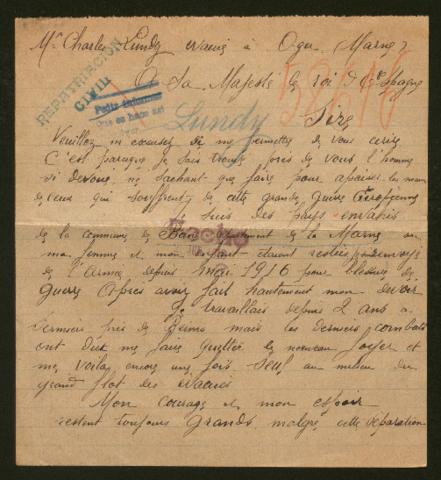 Mr Charles Lundy évacué à Oger Marne
A Sa Majesté le roi d'Espagne
REPATRIATION
CIVIL
52616
Lundy
Sire
Veuillez m'excusez de me permettre de vous écrire
C'est parceque je sais trouver près de vous l'homme
si dévoué, ne sachant que faire pour apaiser les maux
de ceux qui souffrent de cette grande guerre Européenne
Je suis des pays envahis
de la commune de département de la Marne ou
ma femme et mon enfant étaient restés
de l'Armée depuis mai 1916 pour blessure de
guerre Après avoir fait hautement mon devoir
Je travaillais depuis 2 ans
derniers près de Reims mais les derniers combats
ont dut me faire quitter le nouveau foyer et
me voila encore une fois seul au milieu du
grand flot des évacués
Mon courage et mon espoir
restent toujours Grands malgré cette séparation